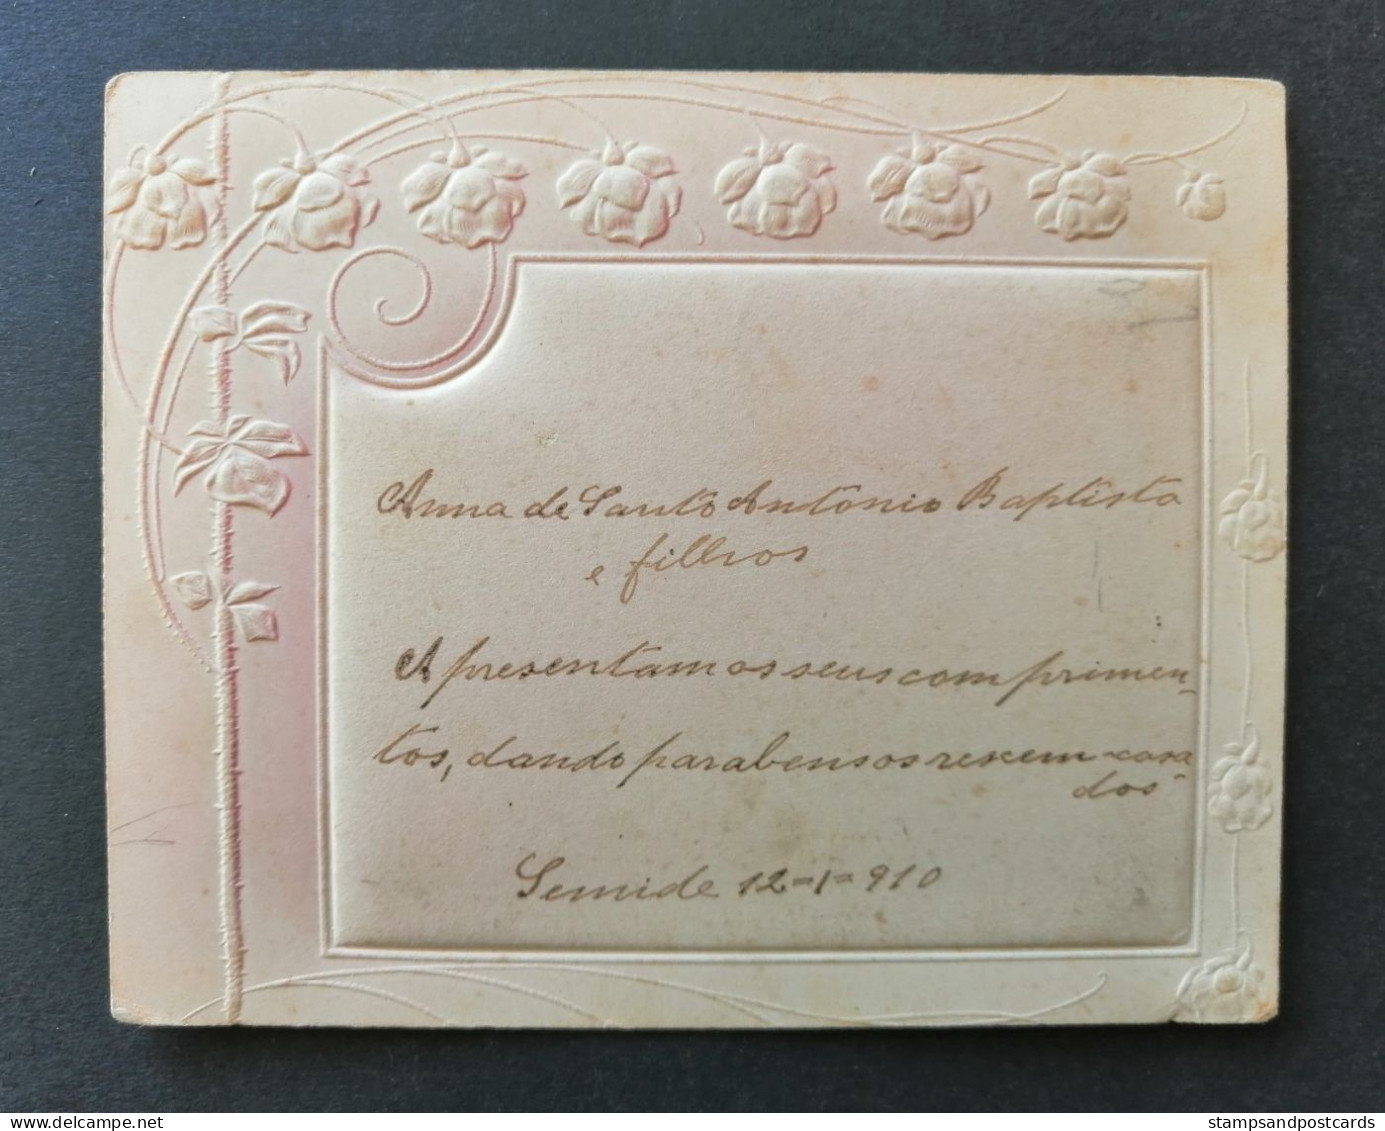 Anna de Santo Antonio Baptista
e filhos
Apresentam os seus comprimen-
tos, dando parabens os rescem-casa
dos
Semide 12-1-910
stampsandpostcards.com